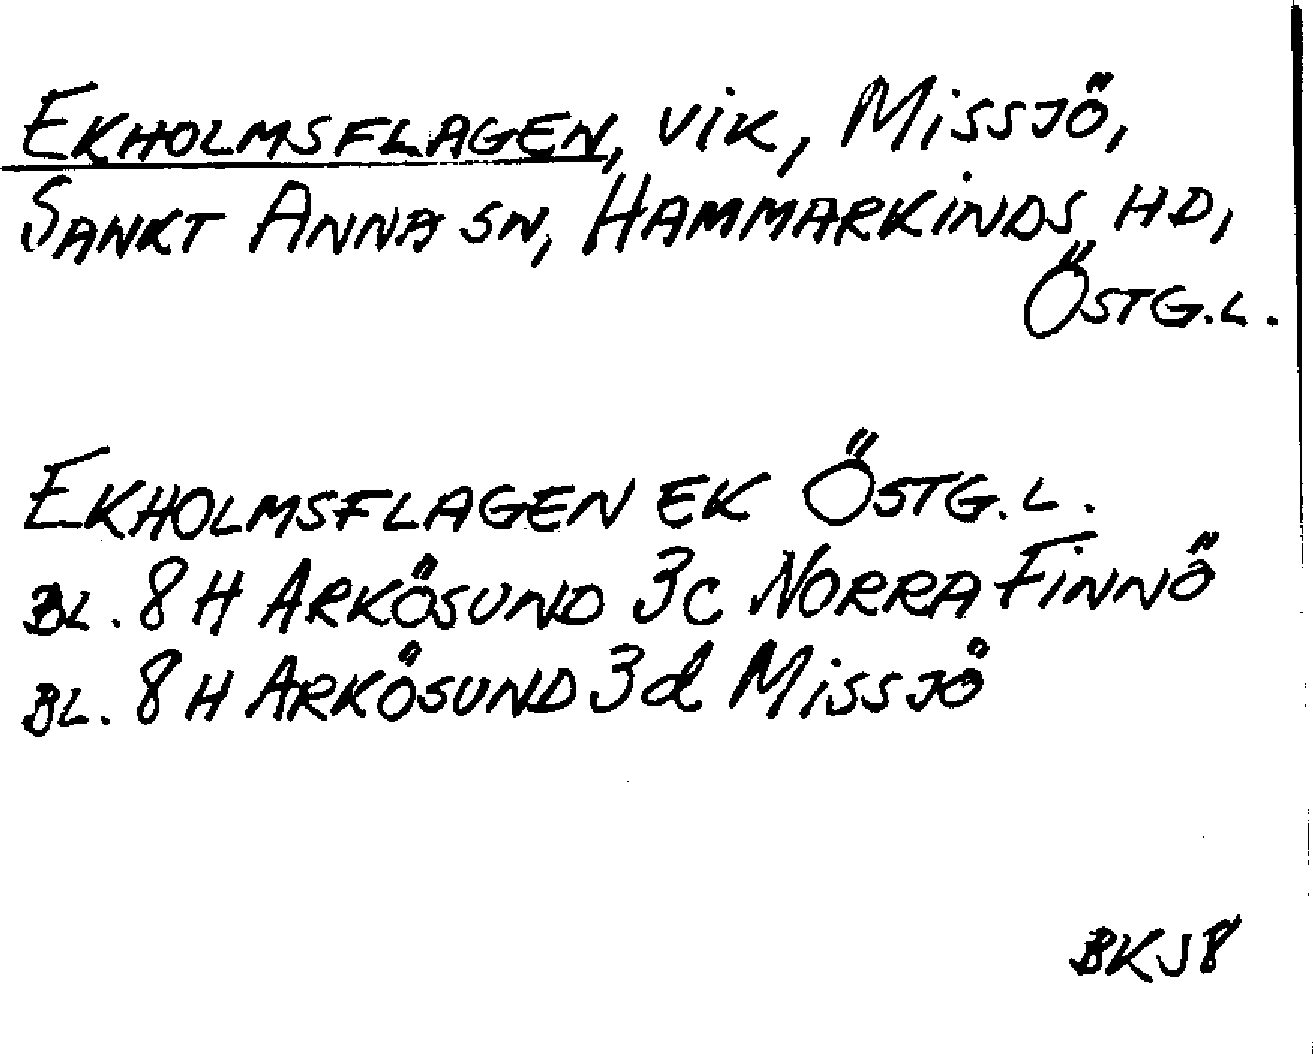 EKHOLMSFLAGEN, VIK, MISSJÖ,
SANKT ANNA SN, HAMMARKINDS HD,
ÖSTG.L.
EKHOLMSFLAGEN EK ÖSTG.L.
BL. 8 H ARKÖSUND 3c NORRA FINNÖ
BL. 8 H ARKÖSUND 3d MISSJÖ
BKJ8